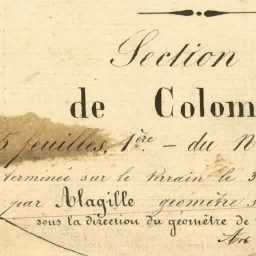 Section
de Colom
5 feuilles. 1ère. - du N
terminée sur le terrain le 3
par Alagille géomètre s
sous la direction du géomètre de